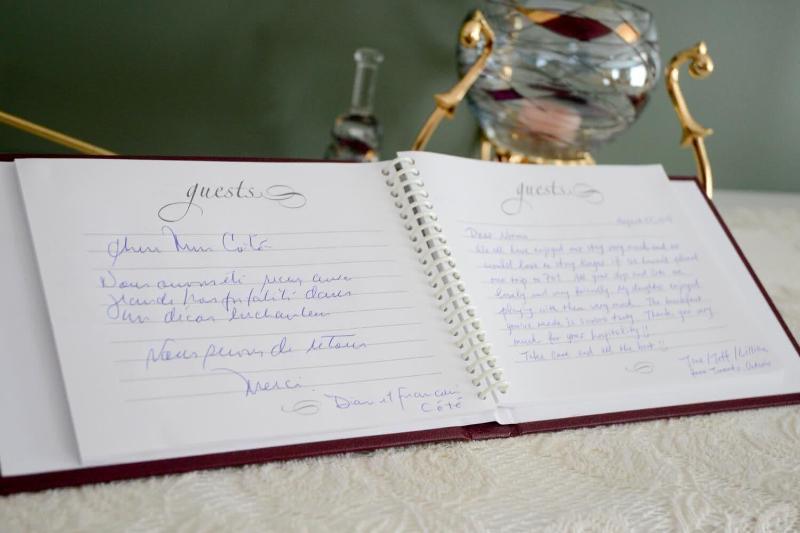 guests
Chère Mme Côté
Nous avons été reçus avec
grande hospitalité dans
un décor enchanteur
Nous serons de retour
Merci.
Dian et François
Côté
guests
August
Dear Norma
We all have enjoyed our stay very much and we
would have to stay longer if we haven't planed
our trip to PEI. All your dogs and cats are
lovely and very friendly. My daughter enjoyed
playing with them very much. The breakfast
you've made is simply tasty. Thank you very
much for your hospitality!!
Take care and all the best!!
/Jeff/Lillian
from Toronto Ontario